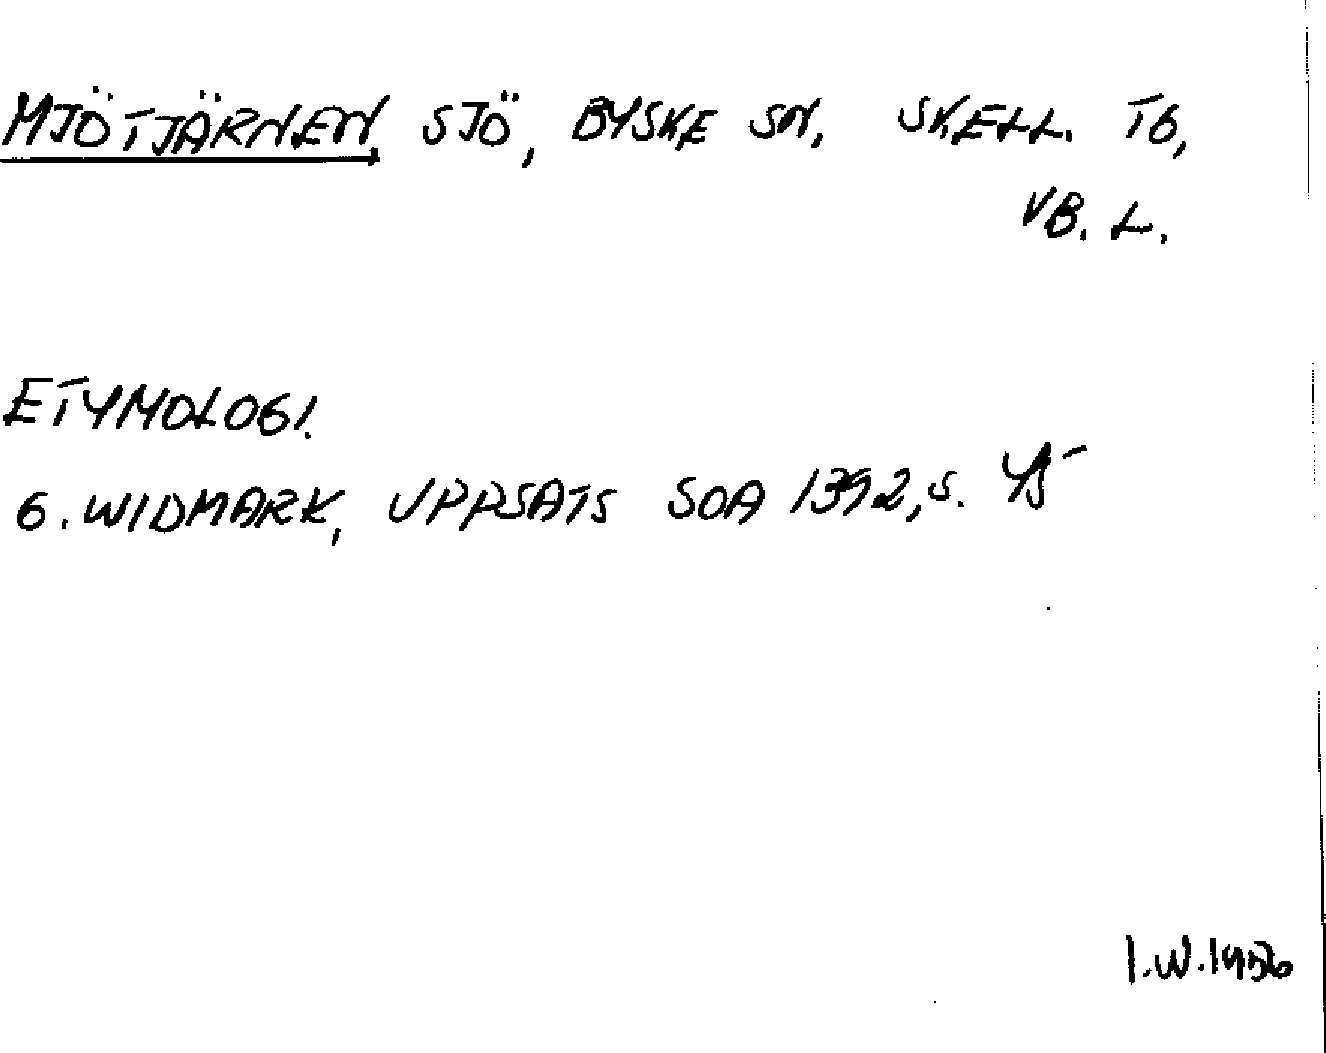 MJÖTJÄRNEN, SJÖ, BYSKE SN, SKELL. TG,
VB. L.
ETYMOLOGI.
G. WIDMARK, UPPSATS SOA 1392, S. 45
I.W. 1956